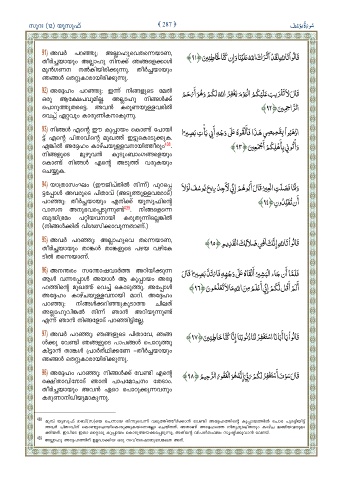 സൂറ: (12) യൂസുഫ് ﴾ 287 ﴿ سورة يوسف
91) അവർ പറഞ്ഞു: അല്ലാഹുവെതന്നെയാണ, തീർച്ചയായും അല്ലാഹു നിനക്ക് ഞങ്ങളെക്കാൾ മുൻഗണന നൽകിയിരിക്കുന്നു. തീർച്ചയായും ഞങ്ങൾ തെറ്റുകാരായിരിക്കുന്നു.
قَالُوا تَاللَّهِ لَقَدْ آثَرَكَ اللَّهُ عَلَيْنَا وَإِن كُنَّا لَخَاطِئِينَ ﴿٩١﴾
92) അദ്ദേഹം പറഞ്ഞു: ഇന്ന് നിങ്ങളുടെ മേൽ ഒരു ആക്ഷേപവുമില്ല. അല്ലാഹു നിങ്ങൾക്ക് പൊറുത്തുതരട്ടെ. അവൻ കരുണയുള്ളവരിൽ വെച്ച് ഏറ്റവും കാരുണികനാകുന്നു.
قَالَ لَا تَثْرِيبَ عَلَيْكُمُ الْيَوْمَ يَغْفِرُ اللَّهُ لَكُمْ وَهُوَ أَرْحَمُ الرَّاحِمِينَ ﴿٩٢﴾
93) നിങ്ങൾ എന്റെ ഈ കുപ്പായം കൊണ്ട് പോയിട്ട് എന്റെ പിതാവിന്റെ മുഖത്ത് ഇട്ടുകൊടുക്കുക. എങ്കിൽ അദ്ദേഹം കാഴ്ചയുള്ളവനായിത്തീരും. നിങ്ങളുടെ മുഴുവൻ കുടുംബാംഗങ്ങളെയും കൊണ്ട് നിങ്ങൾ എന്റെ അടുത്ത് വരുകയും ചെയ്യുക.
اذْهَبُوا بِقَمِيصِي هَٰذَا فَأَلْقُوهُ عَلَىٰ وَجْهِ أَبِي يَأْتِ بَصِيرًا وَأْتُونِي بِأَهْلِكُمْ أَجْمَعِينَ ﴿٩٣﴾
94) യാത്രാസംഘം (ഈജിപ്തിൽ നിന്ന്) പുറപ്പെട്ടപ്പോൾ അവരുടെ പിതാവ് (അടുത്തുള്ളവരോട്) പറഞ്ഞു: തീർച്ചയായും എനിക്ക് യൂസുഫിന്റെ വാസന അനുഭവപ്പെടുന്നുണ്ട്. നിങ്ങളെന്നെ ബുദ്ധിഭ്രമം പറ്റിയവനായി കരുതുന്നില്ലെങ്കിൽ (നിങ്ങൾക്കിത് വിശ്വസിക്കാവുന്നതാണ്.)
وَلَمَّا فَصَلَتِ الْعِيرُ قَالَ أَبُوهُمْ إِنِّي لَأَجِدُ رِيحَ يُوسُفَ لَوْلَا أَن تُفَنِّدُونِ ﴿٩٤﴾
95) അവർ പറഞ്ഞു: അല്ലാഹുവെ തന്നെയാണ, തീർച്ചയായും താങ്കൾ താങ്കളുടെ പഴയ വഴികേടിൽ തന്നെയാണ്.
قَالُوا تَاللَّهِ إِنَّكَ لَفِي ضَلَالِكَ الْقَدِيمِ ﴿٩٥﴾
96) അനന്തരം സന്തോഷവാർത്ത അറിയിക്കുന്ന ആൾ വന്നപ്പോൾ അയാൾ ആ കുപ്പായം അദ്ദേഹത്തിന്റെ മുഖത്ത് വെച്ച് കൊടുത്തു. അപ്പോൾ അദ്ദേഹം കാഴ്ചയുള്ളവനായി മാറി. അദ്ദേഹം പറഞ്ഞു: നിങ്ങൾക്കറിഞ്ഞുകൂടാത്ത ചിലത് അല്ലാഹുവിങ്കൽ നിന്ന് ഞാൻ അറിയുന്നുണ്ട് എന്ന് ഞാൻ നിങ്ങളോട് പറഞ്ഞിട്ടില്ലേ.
فَلَمَّا أَن جَاءَ الْبَشِيرُ أَلْقَاهُ عَلَىٰ وَجْهِهِ فَارْتَدَّ بَصِيرًا قَالَ أَلَمْ أَقُل لَّكُمْ إِنِّي أَعْلَمُ مِنَ اللَّهِ مَا لَا تَعْلَمُونَ ﴿٩٦﴾
97) അവർ പറഞ്ഞു: ഞങ്ങളുടെ പിതാവേ, ഞങ്ങൾക്കു വേണ്ടി ഞങ്ങളുടെ പാപങ്ങൾ പൊറുത്തുകിട്ടാൻ താങ്കൾ പ്രാർത്ഥിക്കണേ -തീർച്ചയായും ഞങ്ങൾ തെറ്റുകാരായിരിക്കുന്നു.
قَالُوا يَا أَبَانَا اسْتَغْفِرْ لَنَا ذُنُوبَنَا إِنَّا كُنَّا خَاطِئِينَ ﴿٩٧﴾
98) അദ്ദേഹം പറഞ്ഞു: നിങ്ങൾക്ക് വേണ്ടി എന്റെ രക്ഷിതാവിനോട് ഞാൻ പാപമോചനം തേടാം. തീർച്ചയായും അവൻ ഏറെ പൊറുക്കുന്നവനും കരുണാനിധിയുമാകുന്നു.
قَالَ سَوْفَ أَسْتَغْفِرُ لَكُمْ رَبِّي إِنَّهُ هُوَ الْغَفُورُ الرَّحِيمُ ﴿٩٨﴾